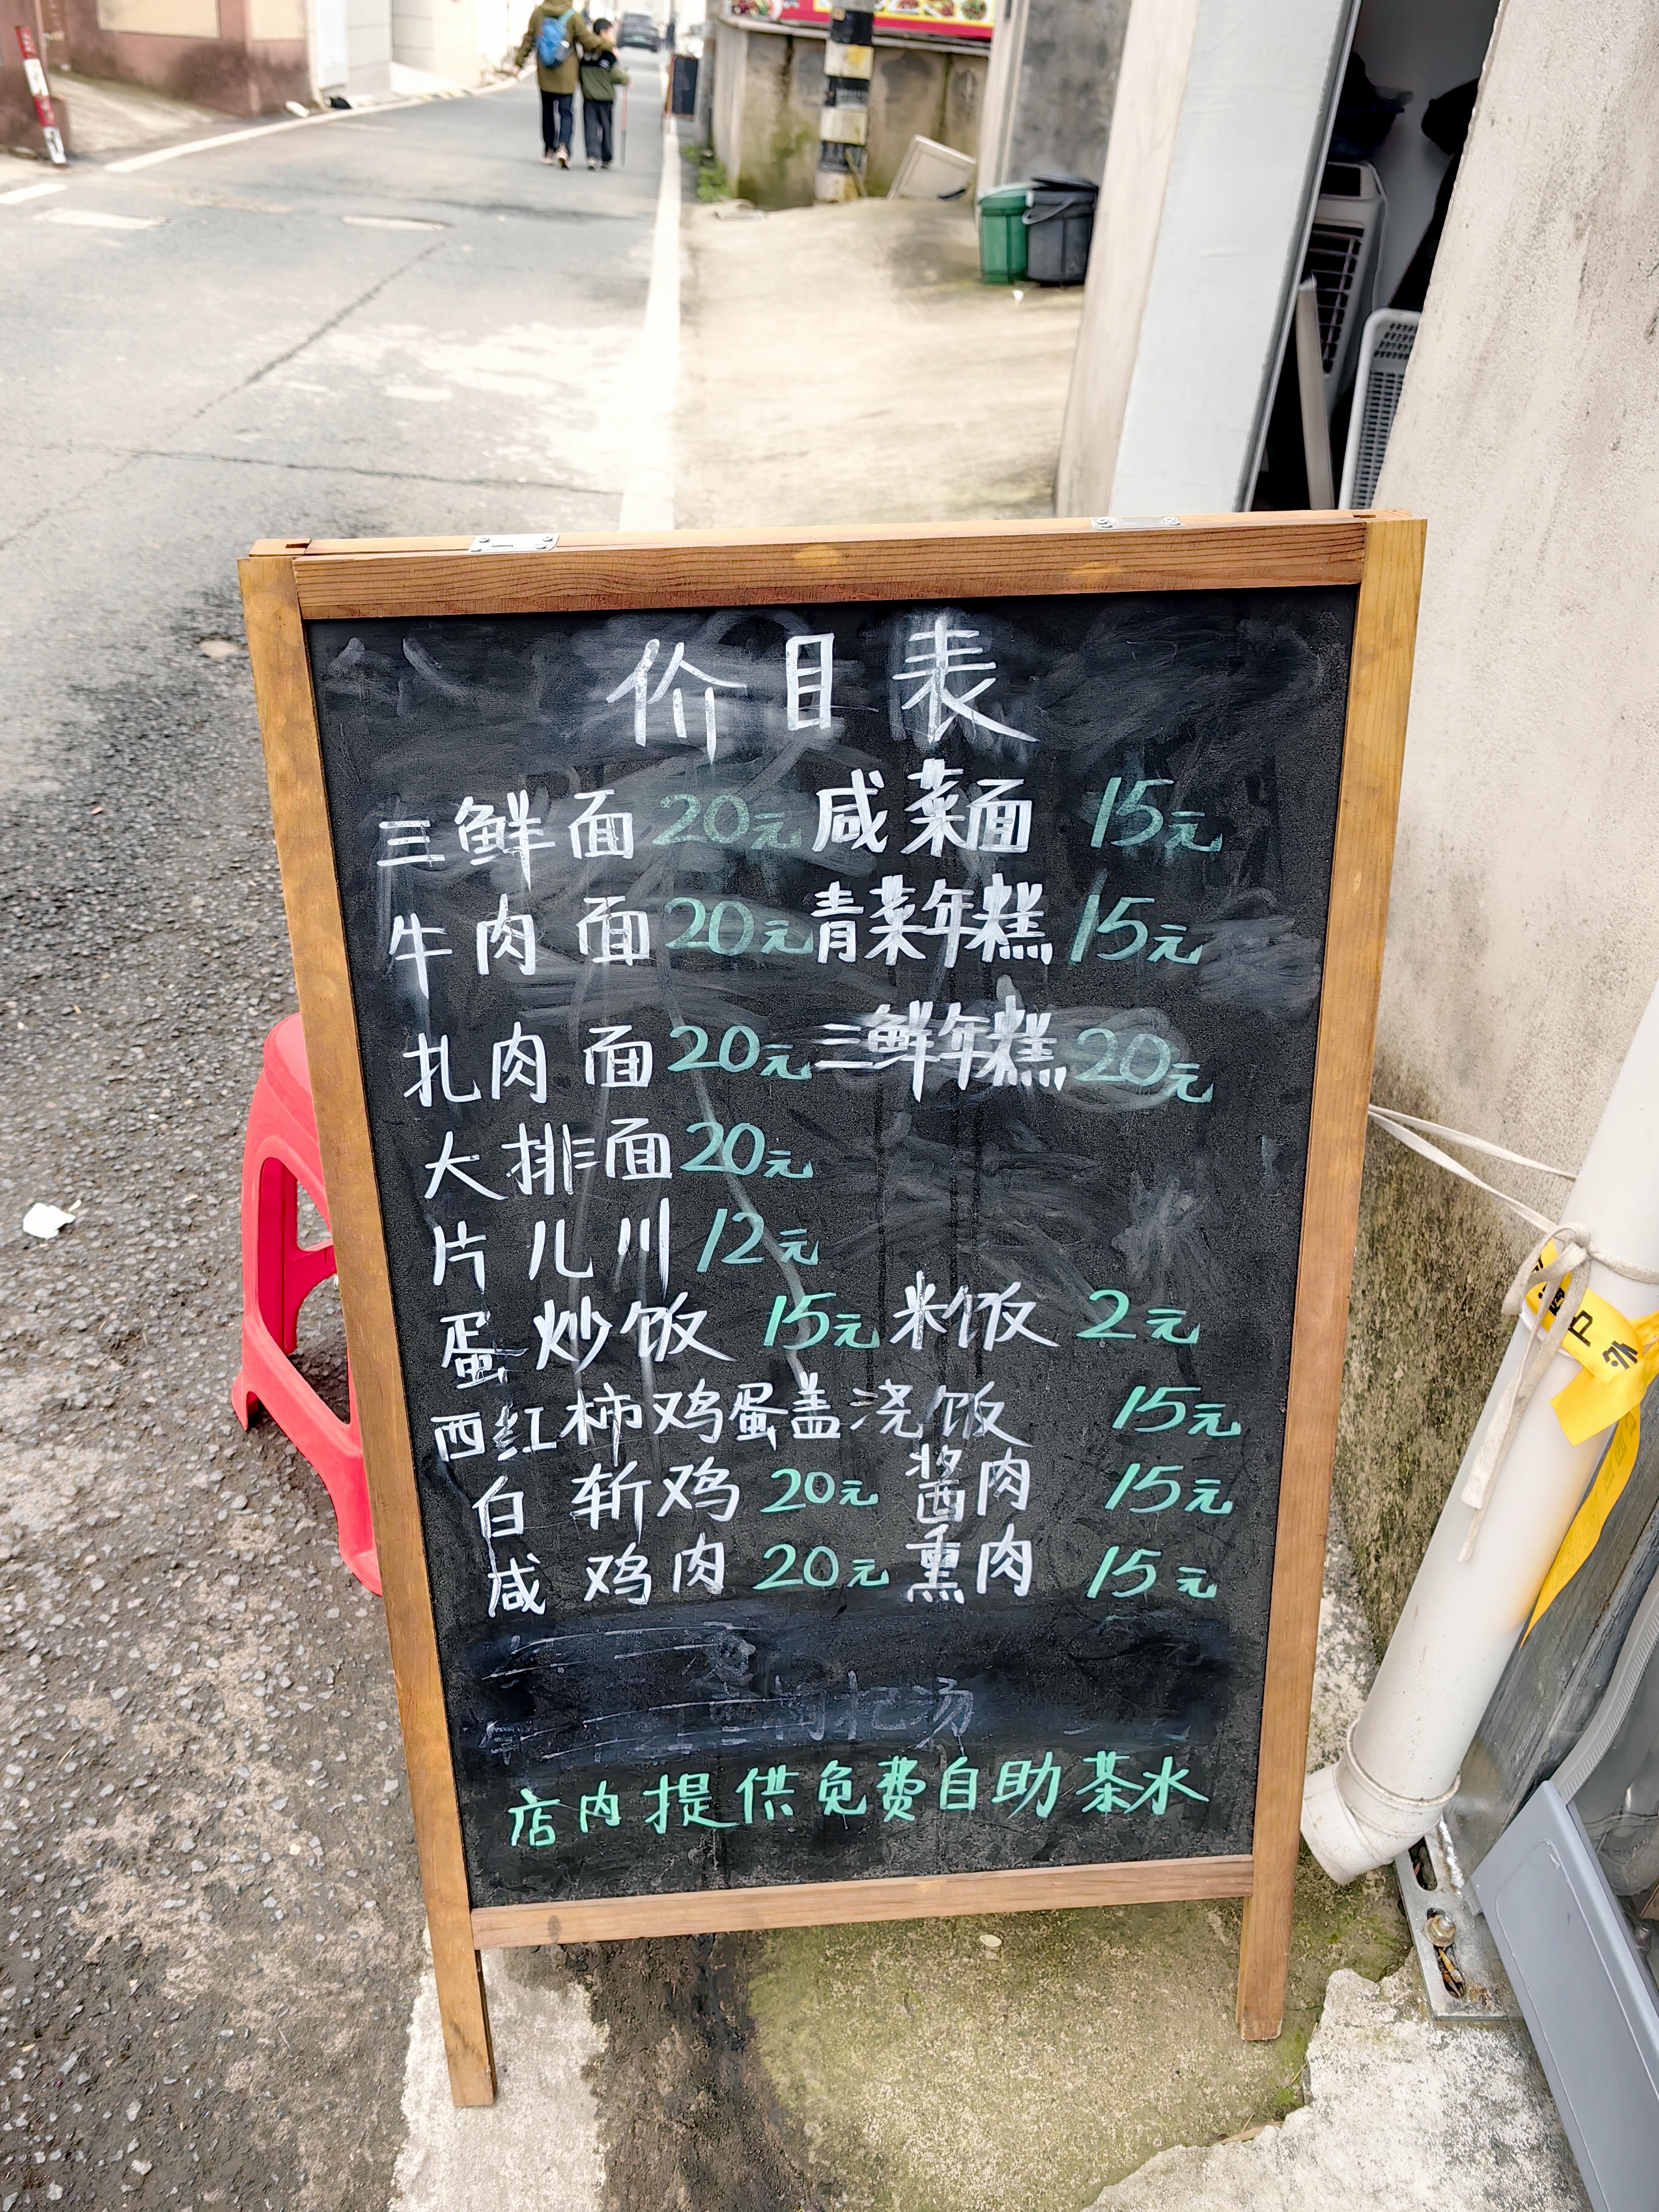 价目表
三鲜面 20元 咸菜面 15元
牛肉面 20元 青菜年糕 15元
扎肉面 20元 三鲜年糕 20元
大排面 20元
片儿川 12元
蛋炒饭 15元 米饭 2元
西红柿鸡蛋盖浇饭 15元
白斩鸡 20元 酱肉 15元
咸鸡肉 20元 熏肉 15元
枸杞汤
店内提供免费自助茶水
户外